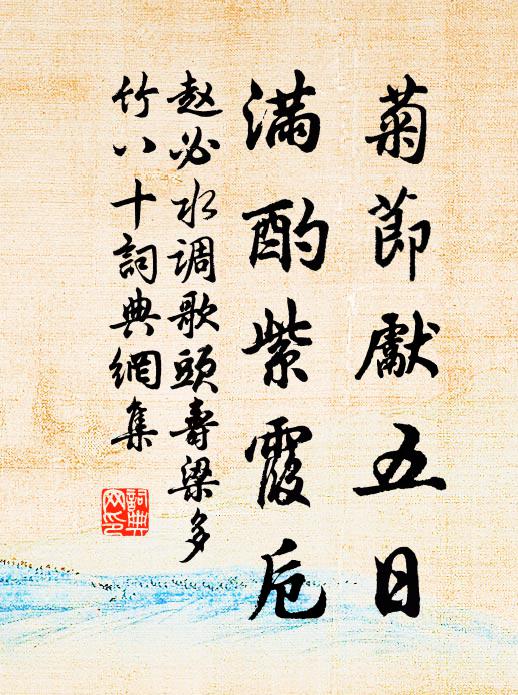 菊節獻五日
滿酌紫霞卮
赵必水调歌頭壽梁多
竹八十詞典網集
詞典网印